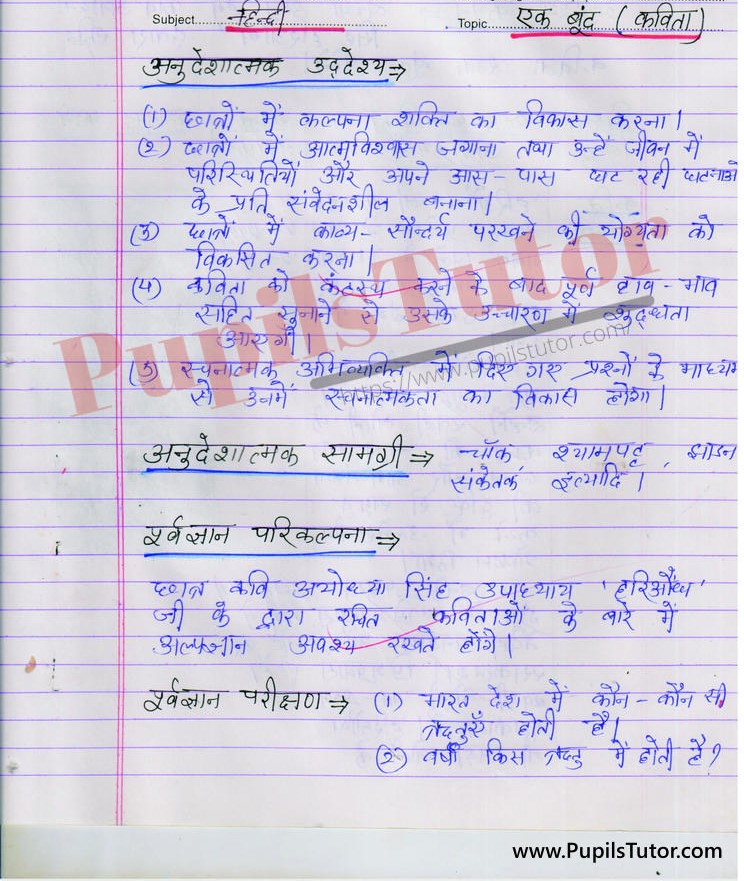 Subject.......हिन्दी.......... Topic.....एक बूंद (कविता)
अनुदेशात्मक उद्देश्य ⇒
(1) छात्रों में कल्पना शक्ति का विकास करना।
(2) छात्रों में आत्मविश्वास जगाना तथा उन्हें जीवन में
परिस्थितियों और अपने आस-पास घट रही घटनाओ
के प्रति संवेदनशील बनाना।
(3) छात्रों में काव्य-सौन्दर्य परखने की योग्यता को
विकसित करना।
(4) कविता को कंठस्थ करने के बाद पूर्ण हाव-भाव
सहित सुनाने से उसके उच्चारण में शुद्धता
आएगी।
(5) रचनात्मक अभिव्यक्ति में दिए गए प्रश्नों के माध्यम
से उनमें रचनात्मकता का विकास होगा।
PupilsTutor
https://www.pupilstutor.com/
अनुदेशात्मक सामग्री ⇒ चॉक, श्यामपट्ट, झाडन
संकेतक, इत्यादि।
पूर्वज्ञान परिकल्पना ⇒
छात्र कवि अयोध्या सिंह उपाध्याय 'हरिऔध'
जी के द्वारा रचित कविताओं के बारे में
अल्पज्ञान अवश्य रखते होंगे।
पूर्वज्ञान परीक्षण ⇒ (1) भारत देश में कौन-कौन सी
ऋतुएँ होती हैं।
(2) वर्षा किस ऋतु में होती है?
www.PupilsTutor.com